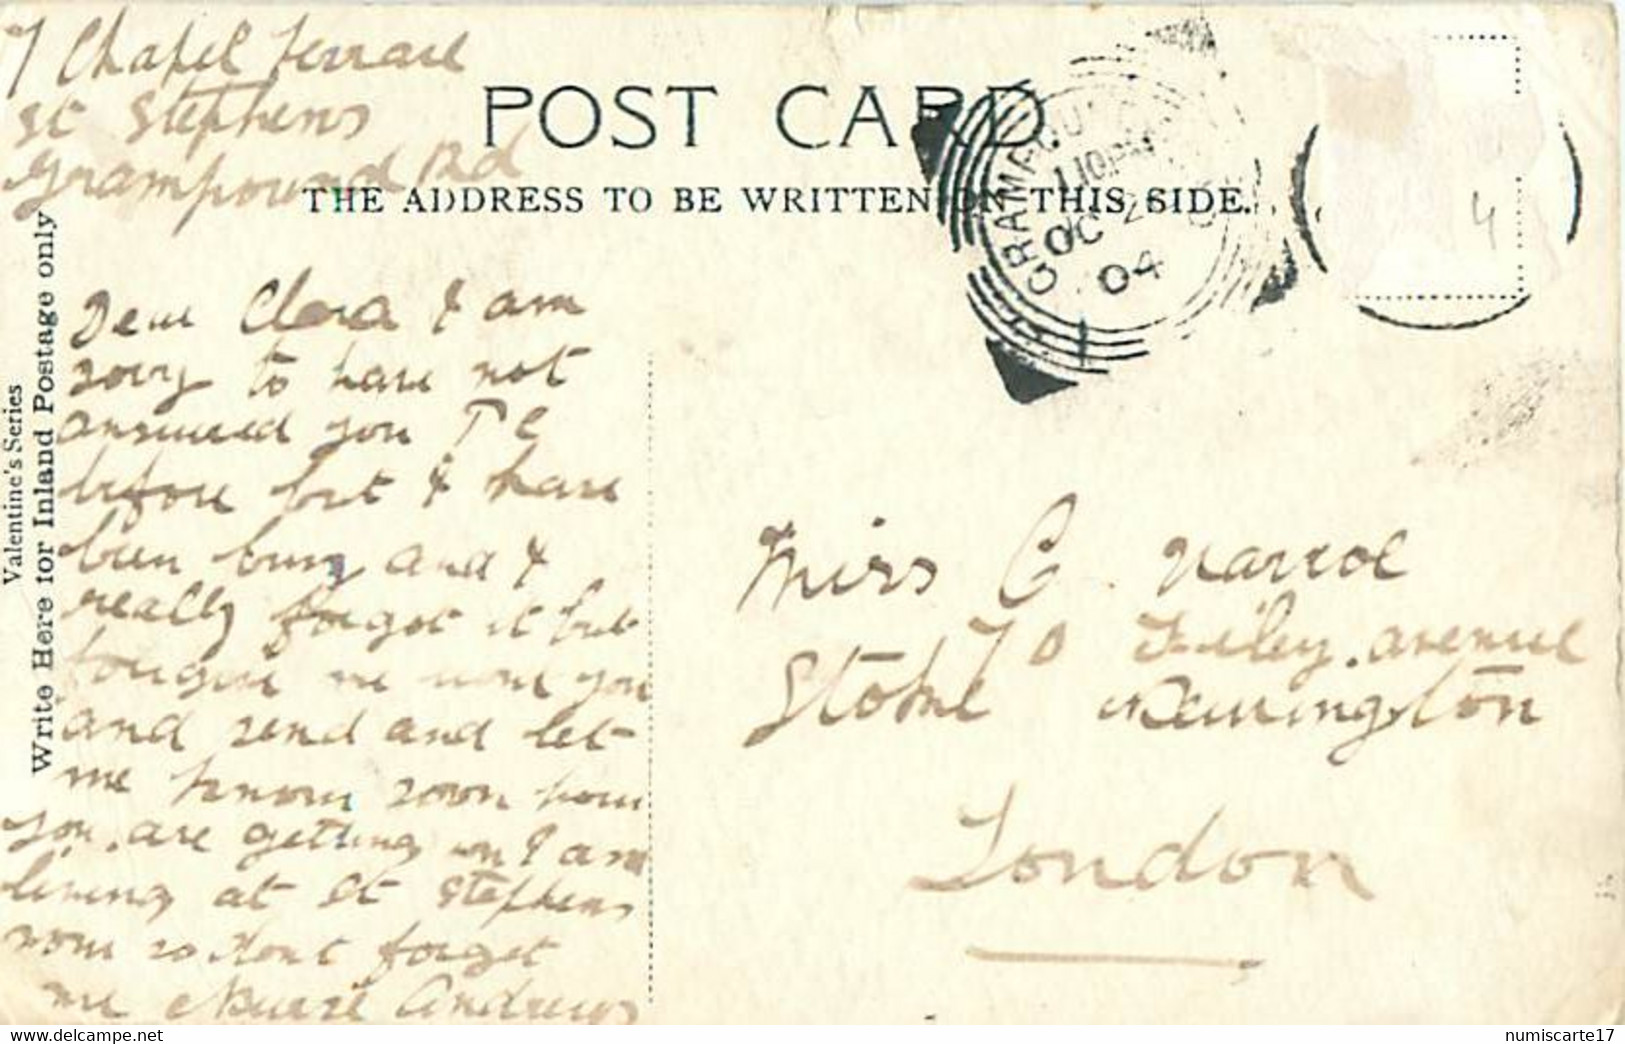 7 Chapel Terrace
St Stephens
Grampound Rd
POST CARD
THE ADDRESS TO BE WRITTEN ON THIS SIDE.
GRAMPOUND
1 10PM
OC 2
04
4
Valentine's Series
Write Here for Inland Postage only
Dear Clara I am
sorry to have not
answered you P C
before but I have
been busy and I
really forgot it but
forgive me wont you
and send and let
me know soon how
you are getting on I am
living at St Stephens
now so dont forget
me Andrews
Miss C.
70 Filey avenue
Stoke Newington
London
www.delcampe.net
numiscarte17